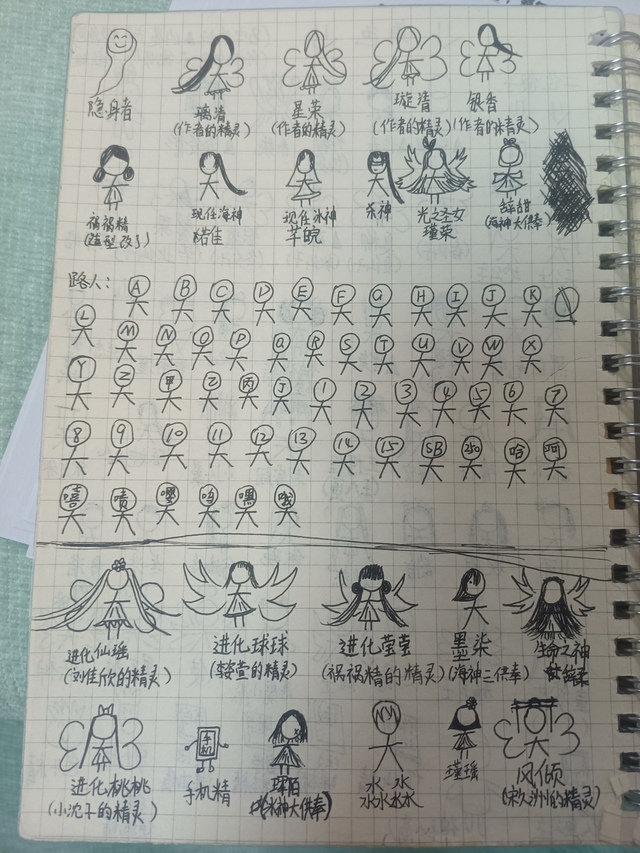 隐身者 璃清 星荣 璇清 银香
(作者的精灵) (作者的精灵) (作者的精灵) (作者的精灵)
祸祸精 现任海神 现任冰神 杀神 光之圣女
(造型改了) 诺佳 芊皖 瑾荣 (海神大供奉)
路人: A B C D E F G H I J K
L M N O P Q R S T U V W X
Y Z 甲 乙 丙 J 1 2 3 4 5 6 7
8 9 10 11 12 13 14 15 SB 250 哈 呵
嘻 啧 嘤 嘿 哦
进化仙瑶 进化球球 进化莹莹 墨柒 生命之神
(刘佳欣的精灵) (李姿萱的精灵) (祸祸精的精灵) (海神三供奉)
手机
进化桃桃 手机精 水水 瑾瑶 风倾
(小沈子的精灵) 水水水水 (宋久洲的精灵)